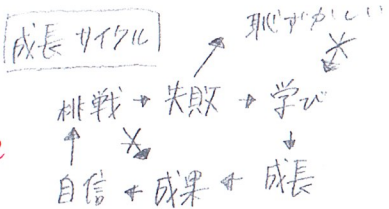 成長サイクル
恥ずかしい
挑戦 → 失敗 → 学び
自信 ← 成果 ← 成長